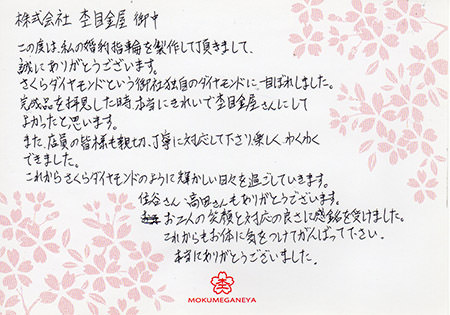 株式会社 杢目金屋 御中
この度は、私の婚約指輪を製作して頂きまして、
誠にありがとうございます。
さくらダイヤモンドという御社独自のダイヤモンドに一目ぼれしました。
完成品を拝見した時、本当にきれいで杢目金屋さんにして
よかったと思います。
また、店員の皆様も親切、丁寧に対応して下さり楽しく、わくわく
できました。
これからさくらダイヤモンドのように輝かしい日々を過ごしていきます。
住谷さん 高田さんもありがとうございます。
お二人の笑顔と対応の良さに感銘を受けました。
これからもお体に気をつけてがんばって下さい。
本当にありがとうございました。
杢
MOKUMEGANEYA